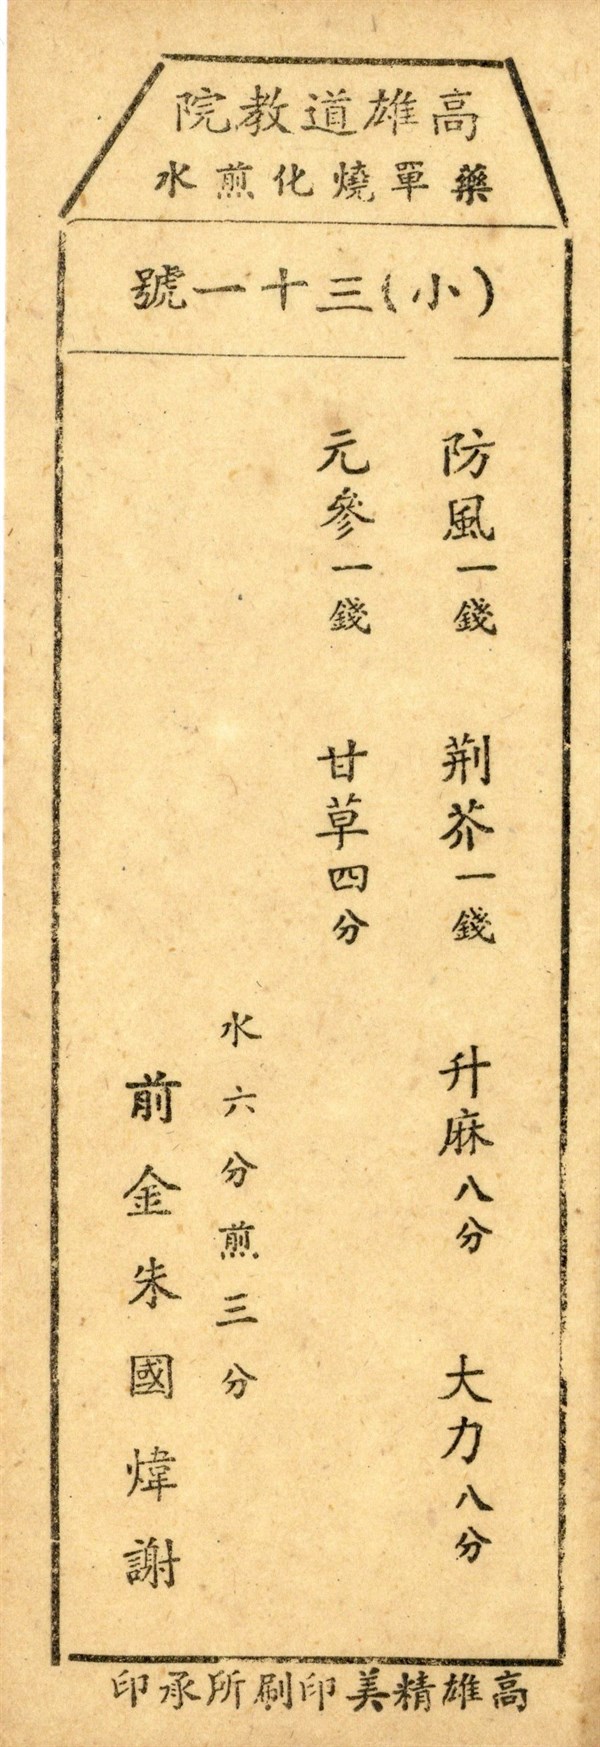 高雄道教院
藥單燒化煎水
(小)三十一號
防風一錢 荆芥一錢 升麻八分 大力八分
元參一錢 甘草四分
水六分煎三分
前金朱國煒謝
高雄精美印刷所承印